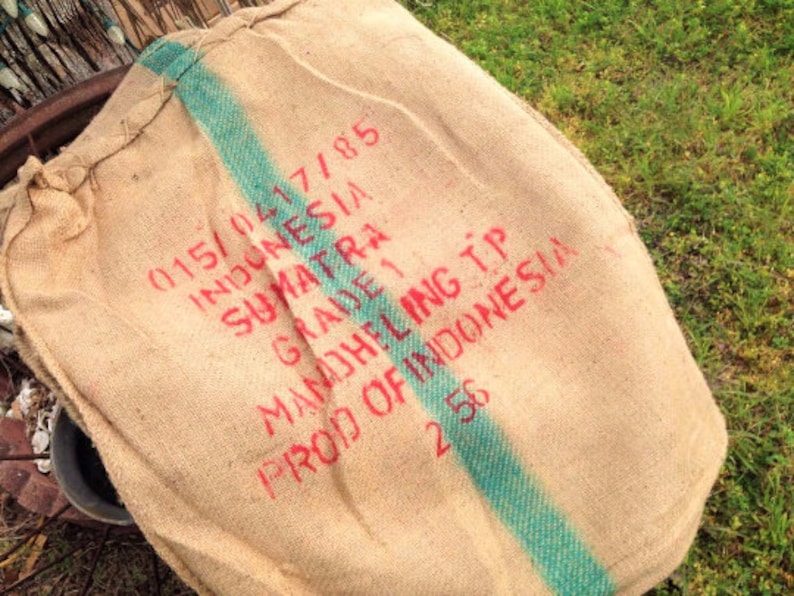 015/0417/85
INDONESIA
SUMATRA
GRADE 1
MANDHELING TP
PROD OF INDONESIA
2 56